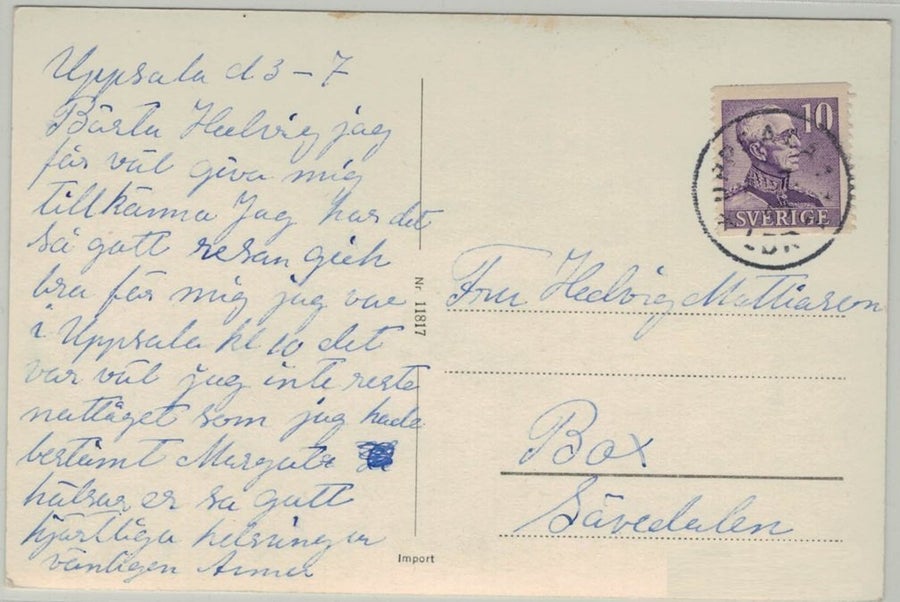 Uppsala d 3 – 7
Bästa Hedvig jag
får väl giva mig
tillkänna Jag har det
så gott resan gick
bra för mig jag var
i Uppsala kl 10 det
var väl jag inte reste
nattåget som jag hade
bestämt Margareta
hälsar er så gott
hjärtliga helsningar
vänligen Anna
Nr 11817
Import
10
SVERIGE
UPPSALA
LBR
Fru Hedvig Mattiason
Box
Sävedalen